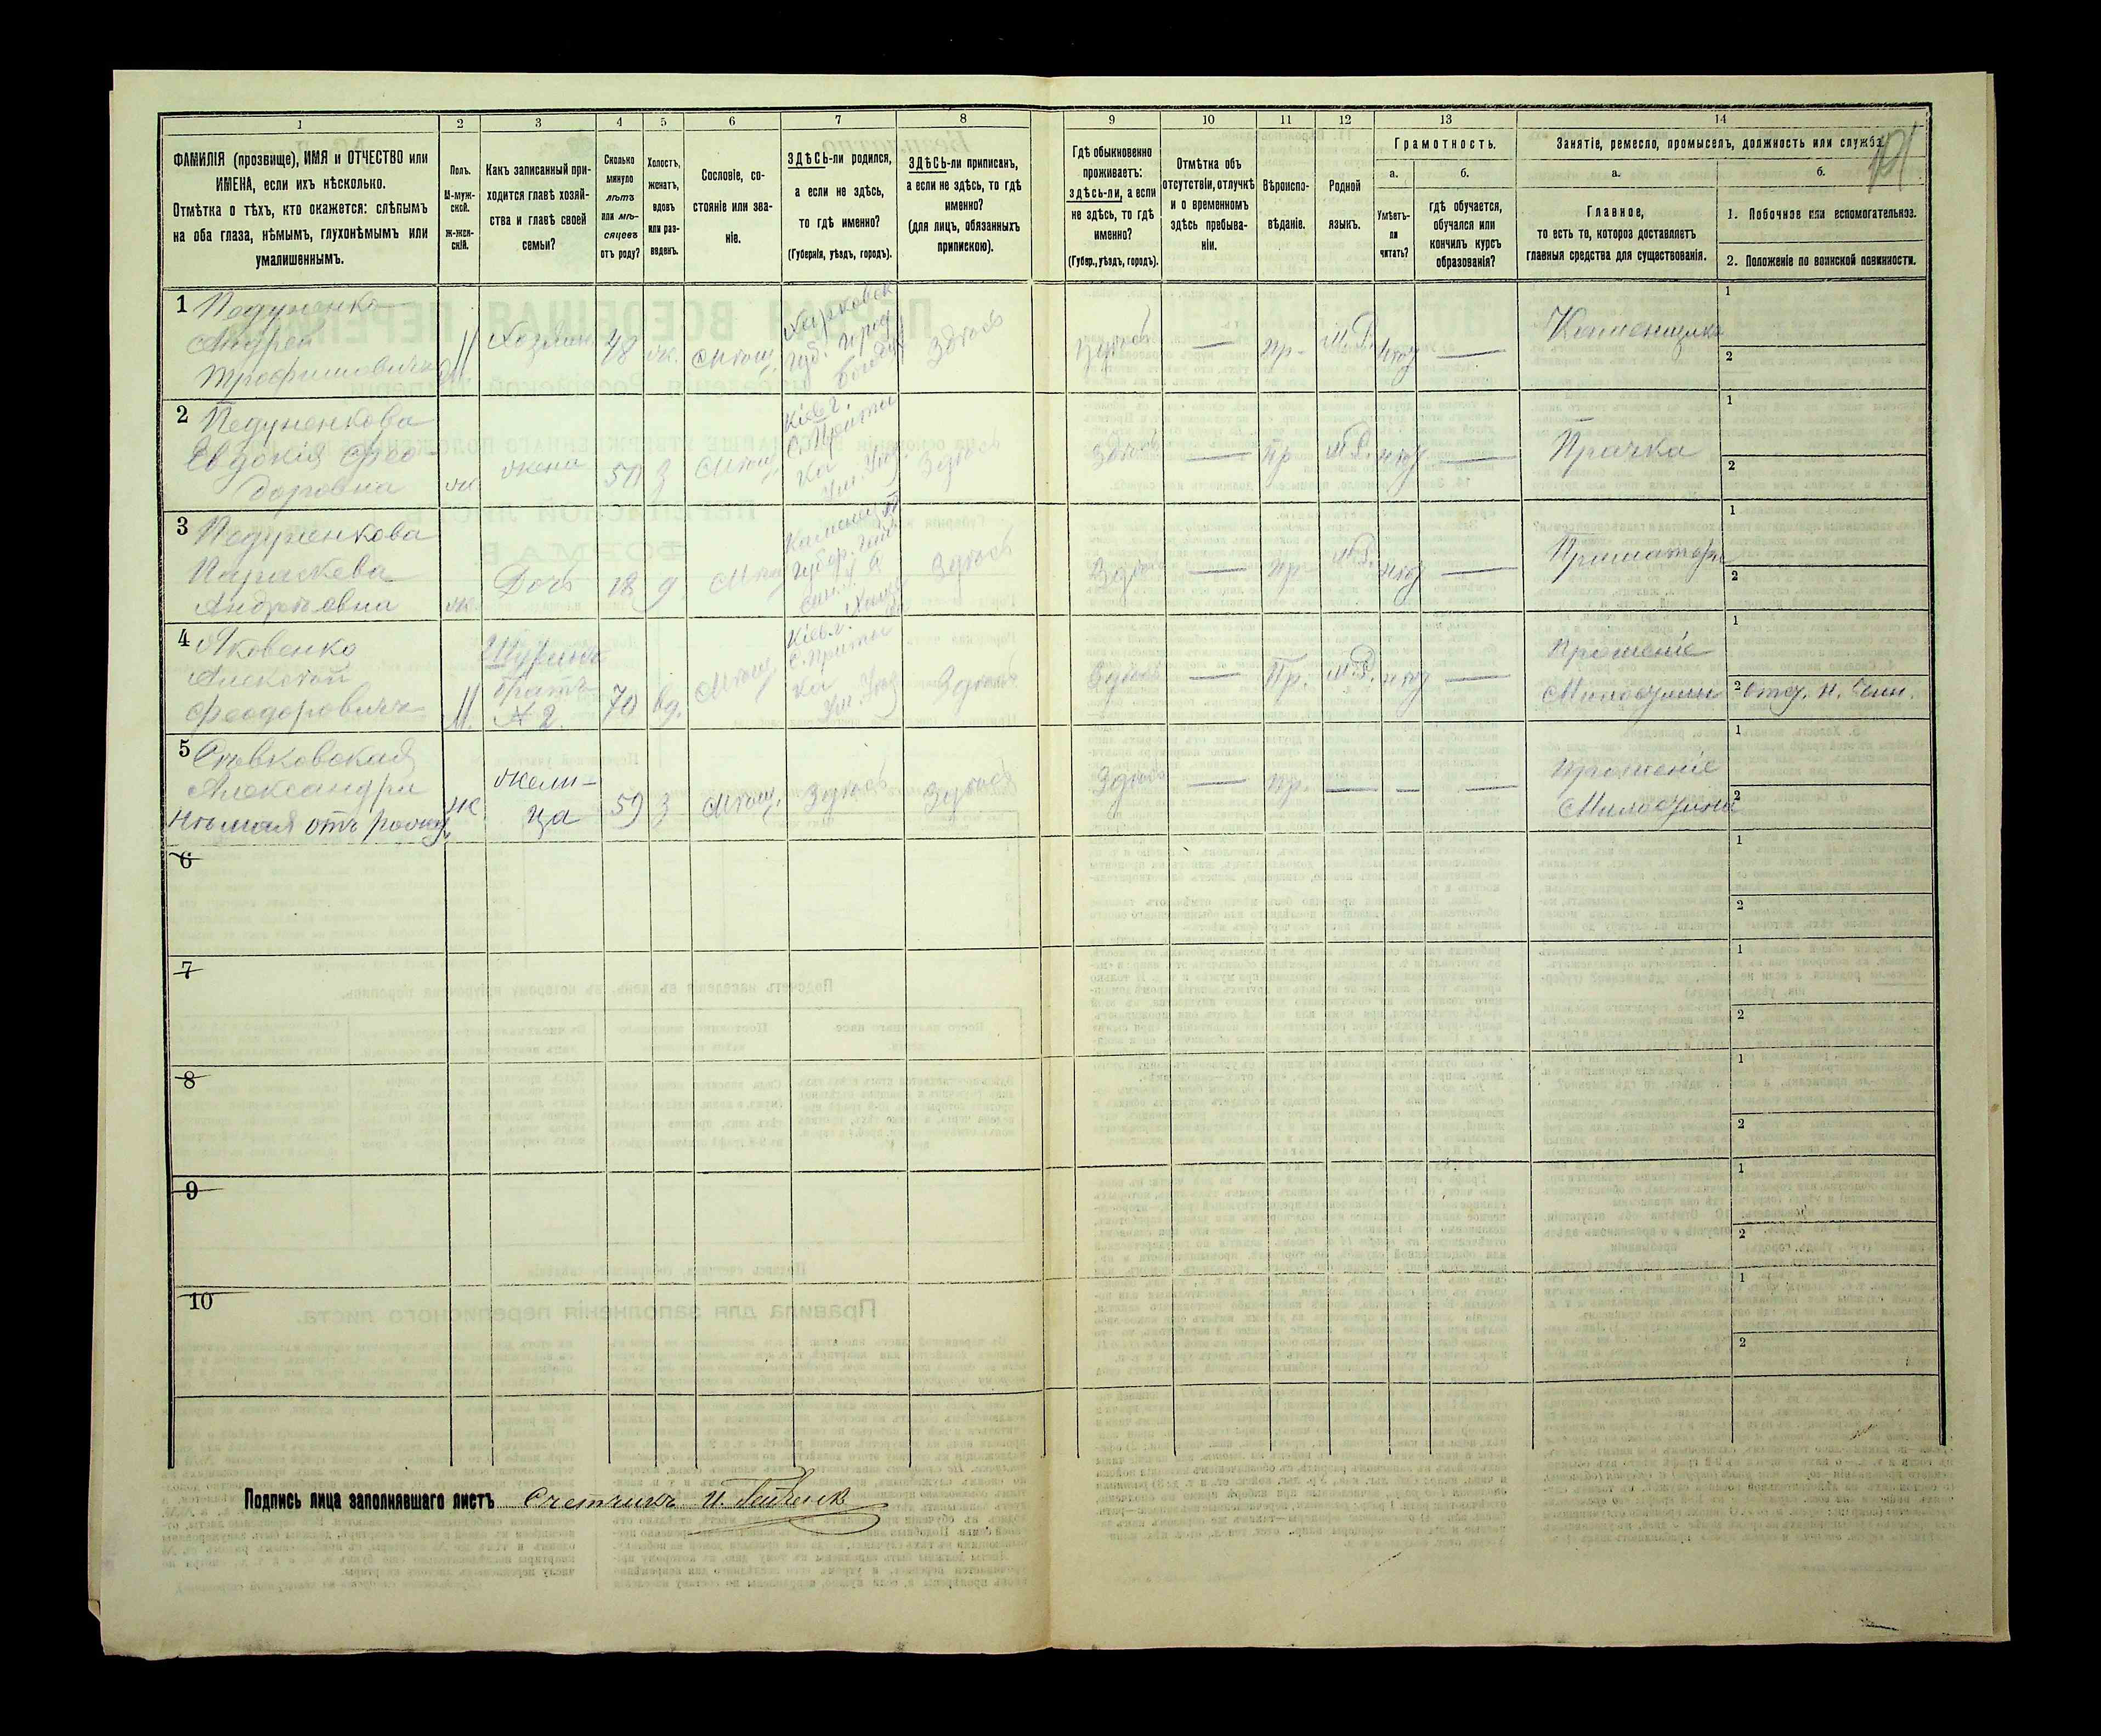 1 2 3 4 5 6 7 8 9 10 11 12 13 14
ФАМИЛІЯ (прозвище), ИМЯ и ОТЧЕСТВО или
ИМЕНА, если ихъ нѣсколько.
Отмѣтка о тѣхъ, кто окажется: слѣпымъ
на оба глаза, нѣмымъ, глухонѣмымъ или
умалишеннымъ.
Полъ.
М-муж-
ской.
Ж-жен-
скій.
Какъ записанный при-
ходится главѣ хозяй-
ства и главѣ своей
семьи?
Сколько
минуло
лѣтъ
или мѣ-
сяцевъ
отъ роду?
Холостъ,
женатъ,
вдовъ
или раз-
веденъ.
Сословіе, со-
стояніе или зва-
ніе.
ЗДѢСЬ-ли родился,
а если не здѣсь,
то гдѣ именно?
(Губернія, уѣздъ, городъ).
ЗДѢСЬ-ли приписанъ,
а если не здѣсь, то гдѣ
именно?
(для лицъ, обязанныхъ
припискою).
Гдѣ обыкновенно
проживаетъ:
здѣсь-ли, а если
не здѣсь, то гдѣ
именно?
(Губер., уѣздъ, городъ).
Отмѣтка объ
отсутствіи, отлучкѣ
и о временномъ
здѣсь пребыва-
ніи.
Вѣроиспо-
вѣданіе.
Родной
языкъ.
Грамотность.
а.
Умѣетъ-
ли
читать?
б.
гдѣ обучается,
обучался или
кончилъ курсъ
образованія?
Занятіе, ремесло, промыселъ, должность или служба.
а.
Главное,
то есть то, которое доставляетъ
главныя средства для существованія.
б.
1. Побочное или вспомогательное.
2. Положеніе по воинской повинности.
1
Андрей
Трофимовичъ
М
Хозяин
48
ж.
Мѣщ.
Харковск
губ.
Здѣсь
Здѣсь
—
пр.
М.Р.
нѣт
—
Каменщикъ
1
2
2
Евдокія Фео-
доровна
ж
жена
50
З
Мѣщ.
Кіев г.
Ум. Уѣз.
Здѣсь
Здѣсь
—
пр
М.Р.
нѣт
—
Прачка
1
2
3
Параскева
Андрѣевна
ж
Дочь
18
д.
Мѣщ
Здѣсь
Здѣсь
—
пр
М.Р.
нѣт
—
1
2
4 Яковенко
Алексѣй
Феодоровичъ
М.
Шуринъ
братъ
№ 2.
70
вд.
Мѣщ
Кіев. г.
Ум. Уѣз
Здѣсь
Здѣсь
—
Пр.
М.Р.
нѣт
—
Прошеніе
Милостыни
1
2 Отст. н. Чин.
5
Александра
Нѣмая отъ роду
ж.
жили-
ца
59
З
Мѣщ.
Здѣсь
Здѣсь
Здѣсь
—
пр.
— — —
Прошеніе
Милостыни
1
2
6
1
2
7
1
2
8
1
2
9
1
2
10
1
2
Подпись лица заполнявшаго листъ Счетчикъ И.